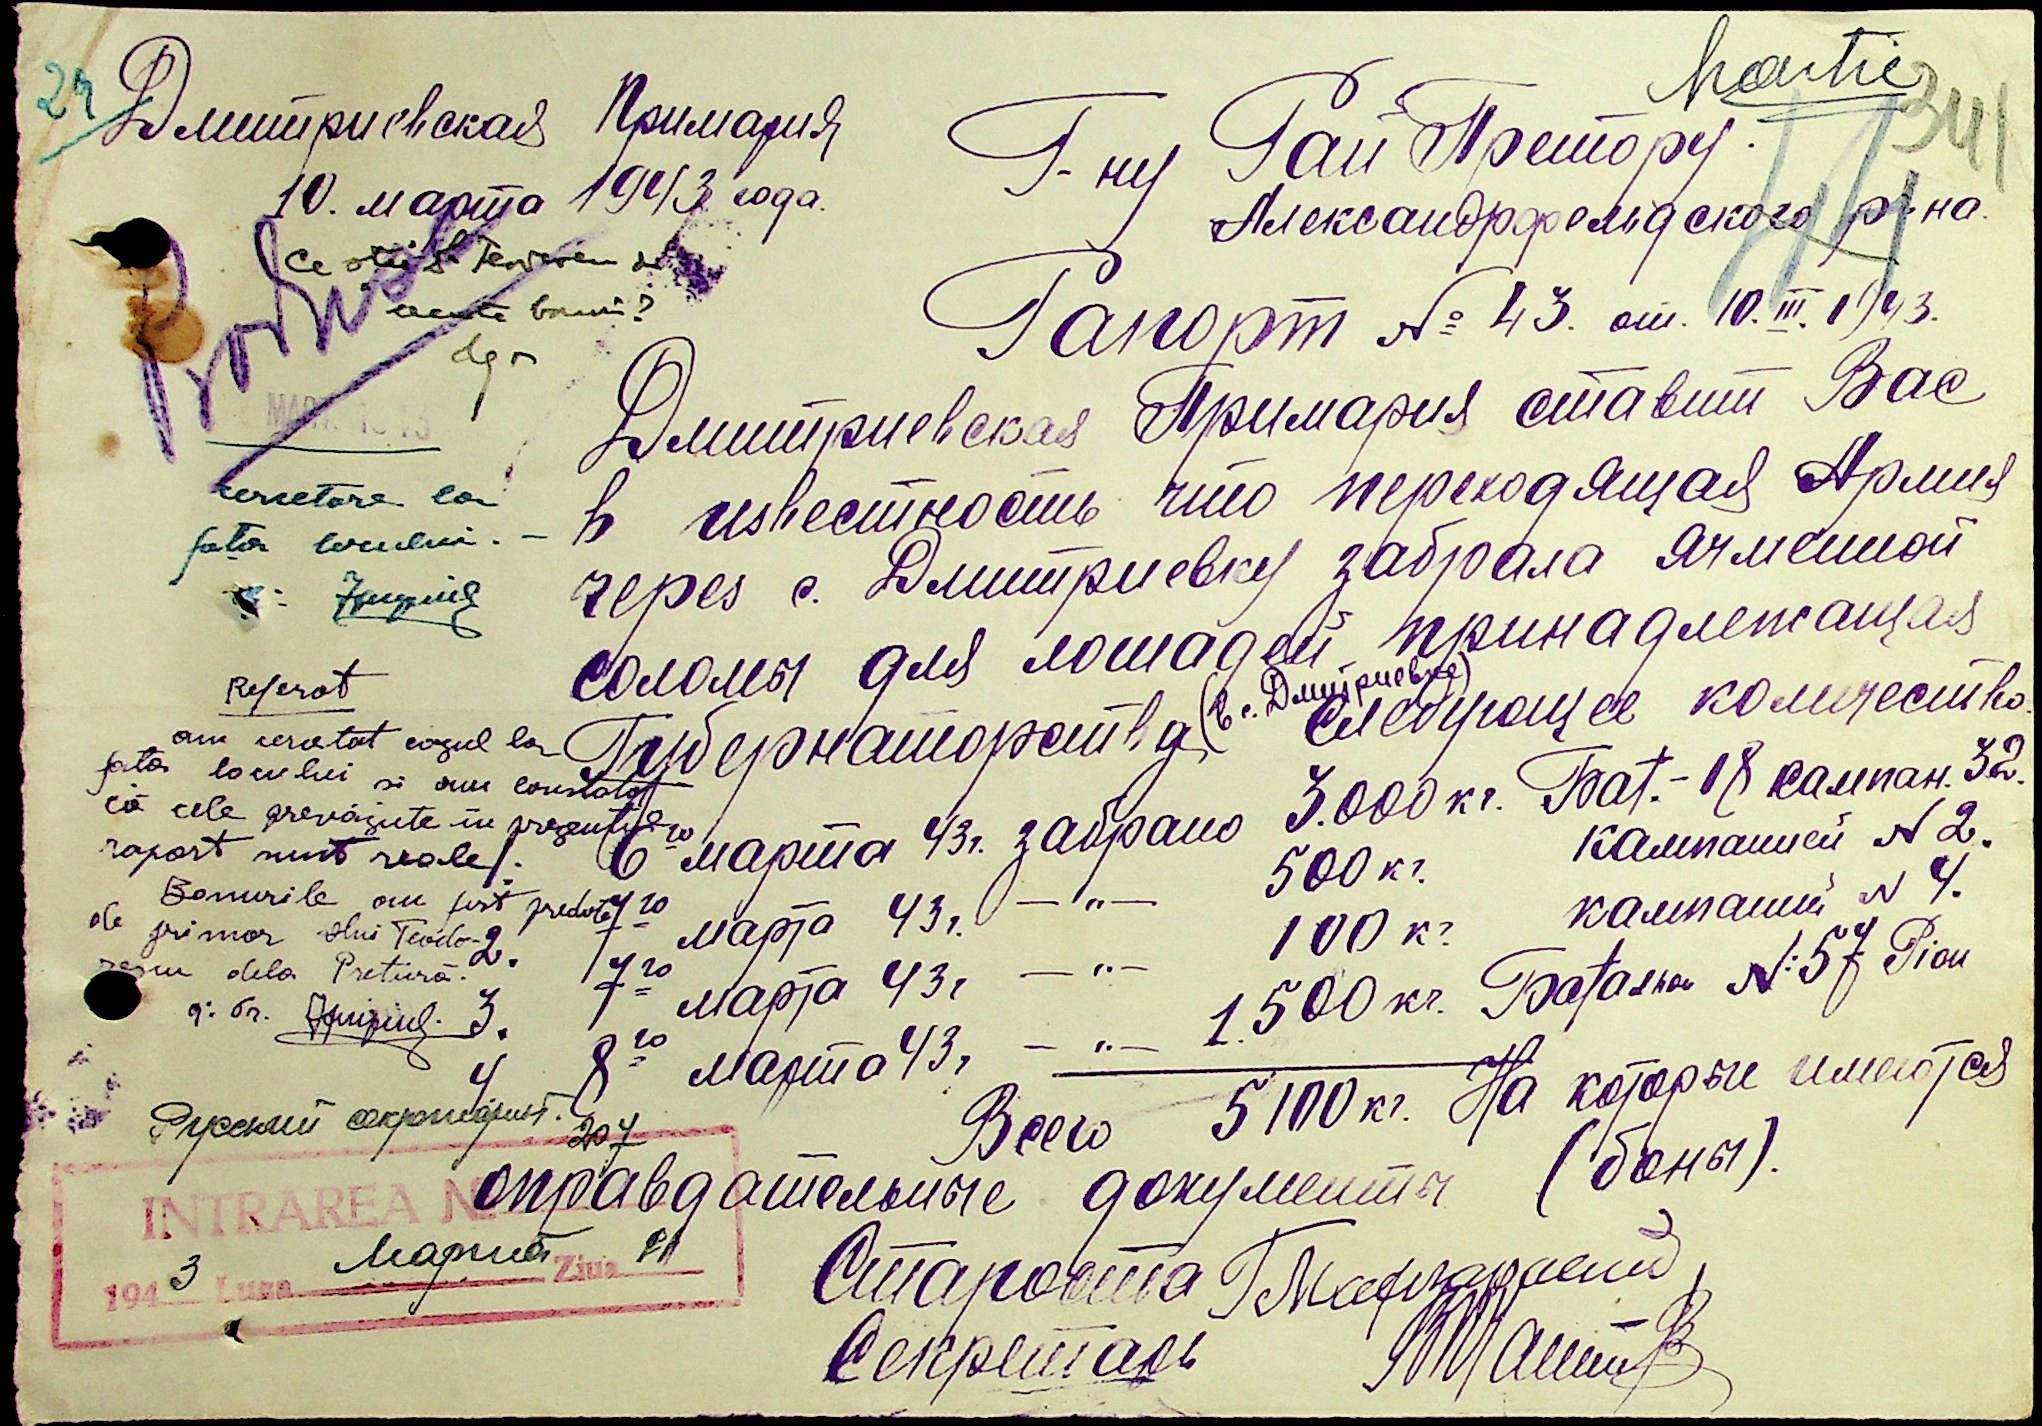 Martie
341
24
Дмитриевская Примария
10. марта 1943 года.
Г-ну Рай Претору.
Александрфельдского р-на.
Рапорт № 43. от. 10.III.1943.
Дмитриевская Примария ставит Вас
в известность что переходящая Армия
через с. Дмитриевку забрала ячменной
соломы для лошадей принадлежащая
Губернаторству (в с. Дмитриевке) следующее количество.
6го марта 43г. забрано 3.000 кг. Бат.- 18 кампан. 32.
7го марта 43г. —"— 500 кг. кампанией № 2.
2. 7го марта 43г —"— 100 кг. кампаний № 4.
3. 8го марта 43г —"— 1.500 кг. Баталион №: 57 Pion
4
Всего 5100 кг. На которые имеются
оправдательные документы (боны).
Староста
Секретарь
bonuri?
MART. 1943
cercetare la
fața locului. -
Referat
am cercetat cazul la
fața locului si am constatat
că cele prevăzute în prezentul
raport sunt reale.
Bonurile au fost predate
de primar dlui Teodo-
rescu dela Pretură.
Русский секретариат.
207
INTRAREA №
1943 Luna Марта Ziua 11